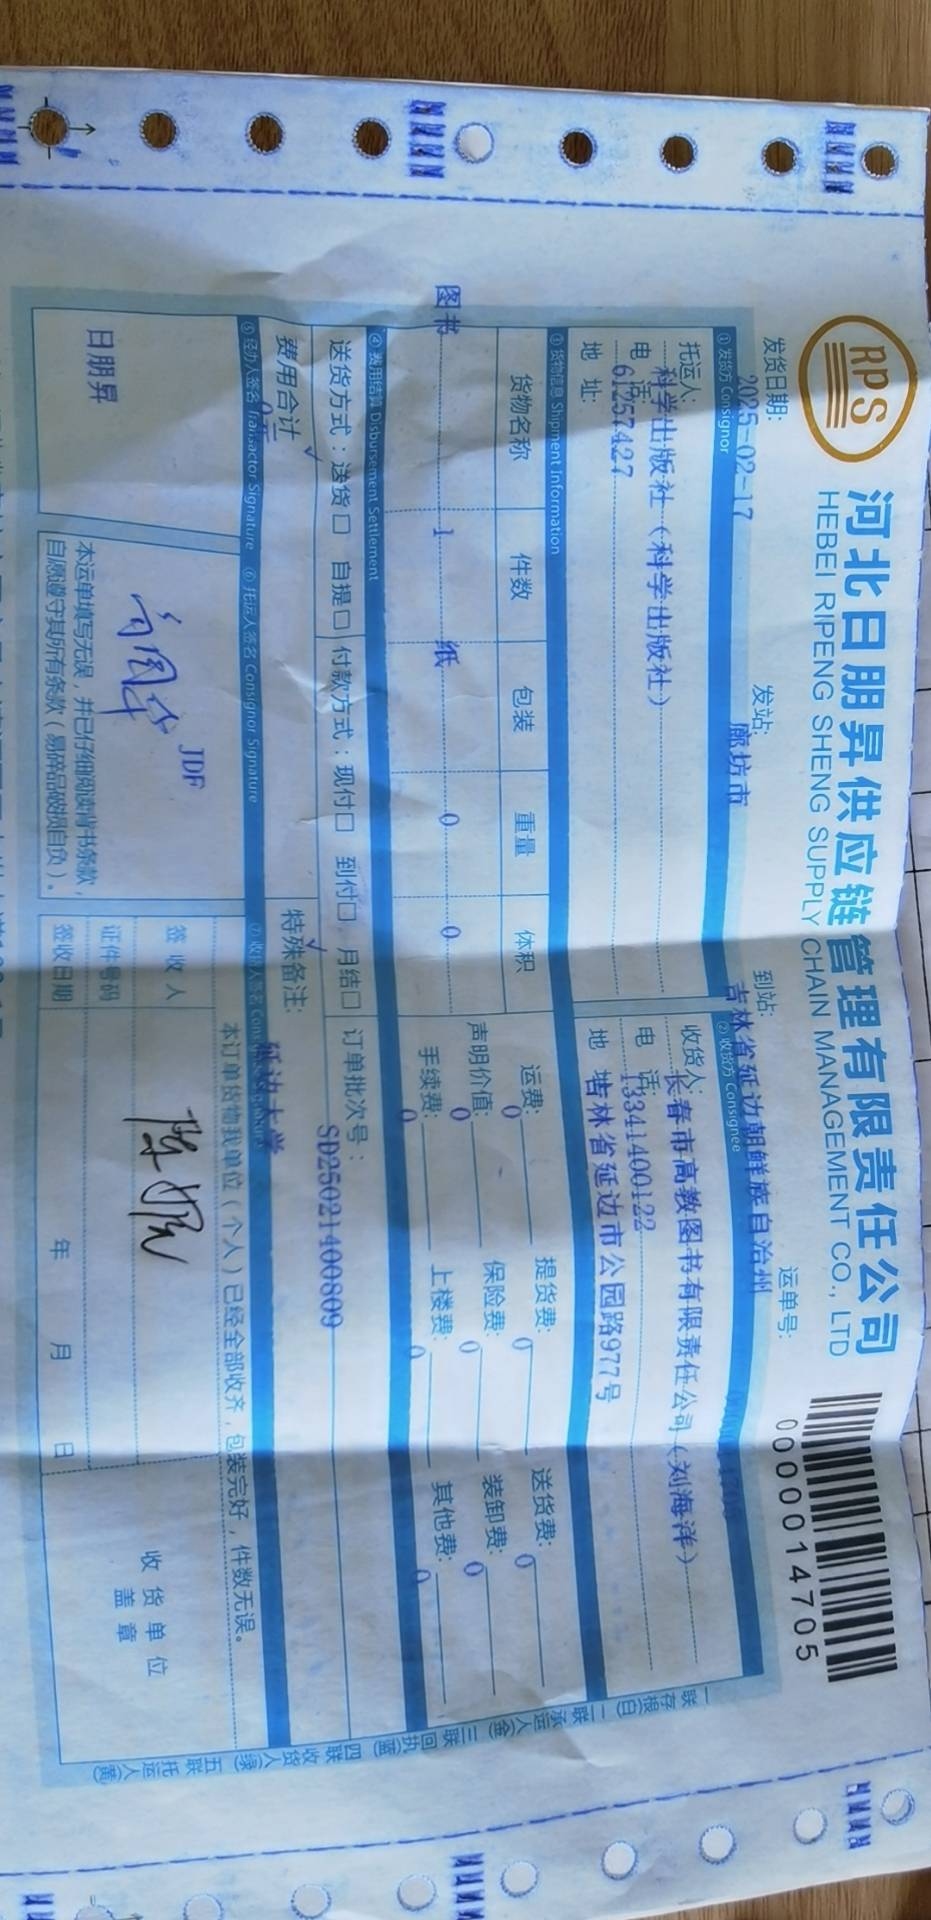 RPS
河北日朋昇供应链管理有限责任公司
HEBEI RIPENG SHENG SUPPLY CHAIN MANAGEMENT CO., LTD
0000014705
发货日期: 2025-02-17 发站: 廊坊市 到站: 吉林省延边朝鲜族自治州 运单号:
① 发货方 Consignor ② 收货方 Consignee
托运人: 科学出版社(科学出版社) 收货人: 长春市高教图书有限责任公司(刘海洋)
电 话: 61257427 电 话: 13341400122
地 址: 地 址: 吉林省延边市公园路977号
③ 货物信息 Shipment Information
货物名称 件数 包装 重量 体积 运费: 0 提货费: 0 送货费: 0
声明价值: 0 保险费: 0 装卸费: 0
图书 1 纸 0 0 手续费: 0 上楼费: 0 其他费: 0
④ 费用结算 Disbursement Settlement
送货方式:送货□ 自提□ 付款方式:现付□ 到付□ 月结□ 订单批次号: SD25021400809
费用合计 特殊备注: 延边大学
⑤ 经办人签名 Transactor Signature ⑥ 托运人签名 Consignor Signature ⑦ 收货人签名
日朋昇
JDF
本运单填写无误,并已仔细阅读背书条款,
自愿遵守其所有条款(易碎品破损自负)。
本订单货物我单位(个人)已经全部收齐,包装完好,件数无误。
签收人
证件号码
签收日期 年 月 日
收货单位
盖章
一联存根(白) 二联承运人(金) 三联回执(蓝) 四联收货人(绿) 五联托运人(黄)